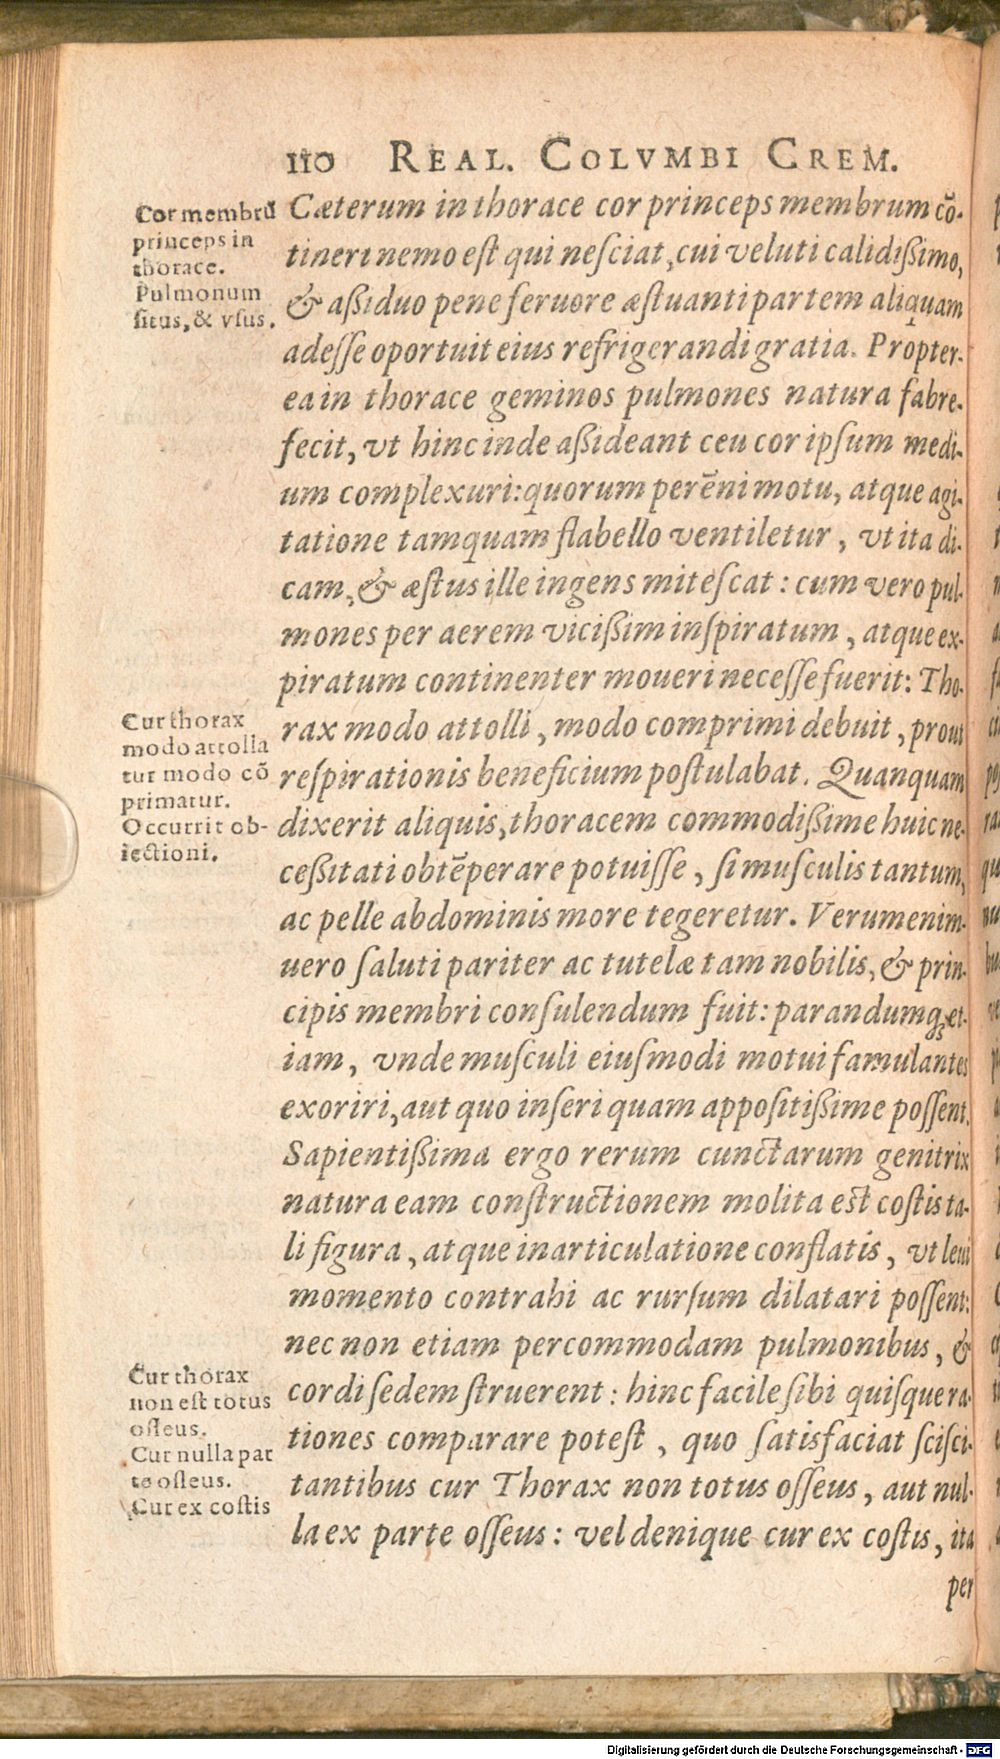 110 REAL. COLVMBI CREM.
Cor membrũ
princeps in
thorace.
Pulmonum
situs, & vsus.
Cæterum in thorace cor princeps membrum cõ-
tineri nemo est qui nesciat, cui veluti calidißimo,
& aßiduo pene feruore æstuanti partem aliquam
adesse oportuit eius refrigerandi gratia. Propter-
ea in thorace geminos pulmones natura fabre-
fecit, vt hinc inde aßideant ceu cor ipsum medi-
um complexuri: quorum perẽni motu, atque agi-
tatione tamquam flabello ventiletur, vt ita di-
cam, & æstus ille ingens mitescat: cum vero pul-
mones per aerem vicißim inspiratum, atque ex-
piratum continenter moueri necesse fuerit: Tho-
Cur thorax
modo attolla
tur modo cõ
primatur.
Occurrit ob-
iectioni.
rax modo attolli, modo comprimi debuit, prout
respirationis beneficium postulabat. Quanquam
dixerit aliquis, thoracem commodißime huic ne-
ceßitati obtẽperare potuisse, si musculis tantum,
ac pelle abdominis more tegeretur. Verumenim-
uero saluti pariter ac tutelæ tam nobilis, & prin-
cipis membri consulendum fuit: parandumq; et-
iam, vnde musculi eiusmodi motui famulantes
exoriri, aut quo inseri quam appositißime possent.
Sapientißima ergo rerum cunctarum genitrix
natura eam constructionem molita est costis ta-
li figura, atque inarticulatione conflatis, vt leui
momento contrahi ac rursum dilatari possent:
nec non etiam percommodam pulmonibus, &
Cur thorax
non est totus
osseus.
Cur nulla par
te osseus.
Cur ex costis
cordi sedem struerent: hinc facile sibi quisque ra-
tiones comparare potest, quo satisfaciat scisci-
tantibus cur Thorax non totus osseus, aut nul-
la ex parte osseus: vel denique cur ex costis, ita
per
Digitalisierung gefördert durch die Deutsche Forschungsgemeinschaft - DFG